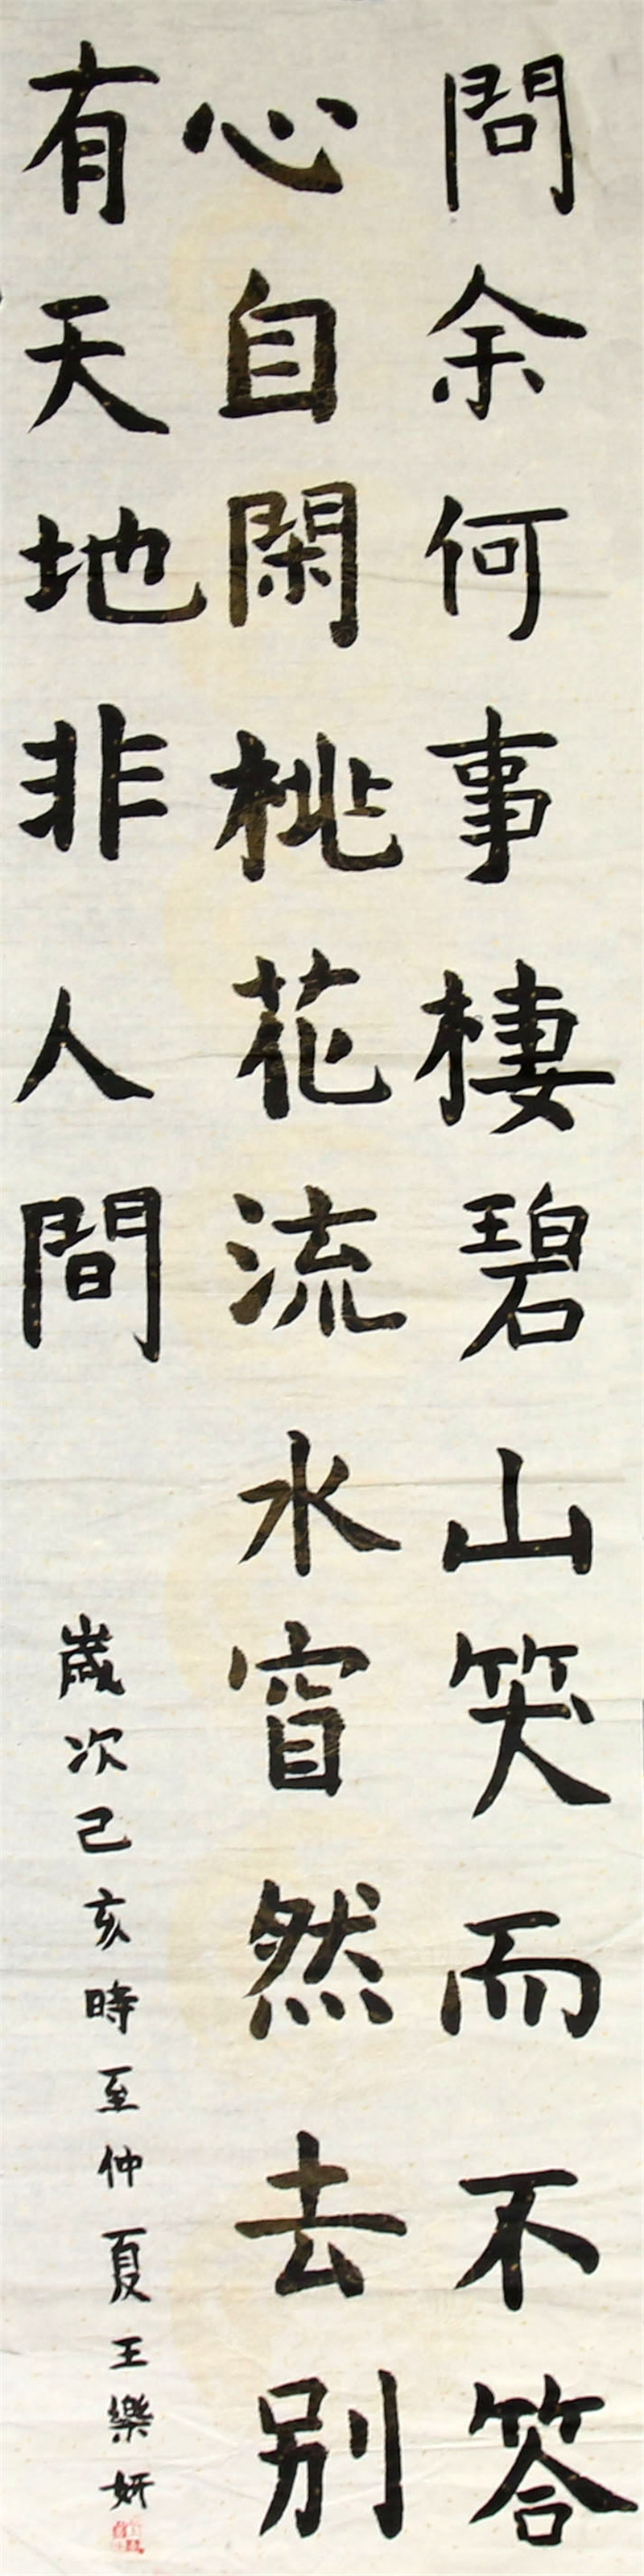 問余何事棲碧山笑而不答
心自閑桃花流水窅然去别
有天地非人間
歲次己亥時至仲夏王樂妍